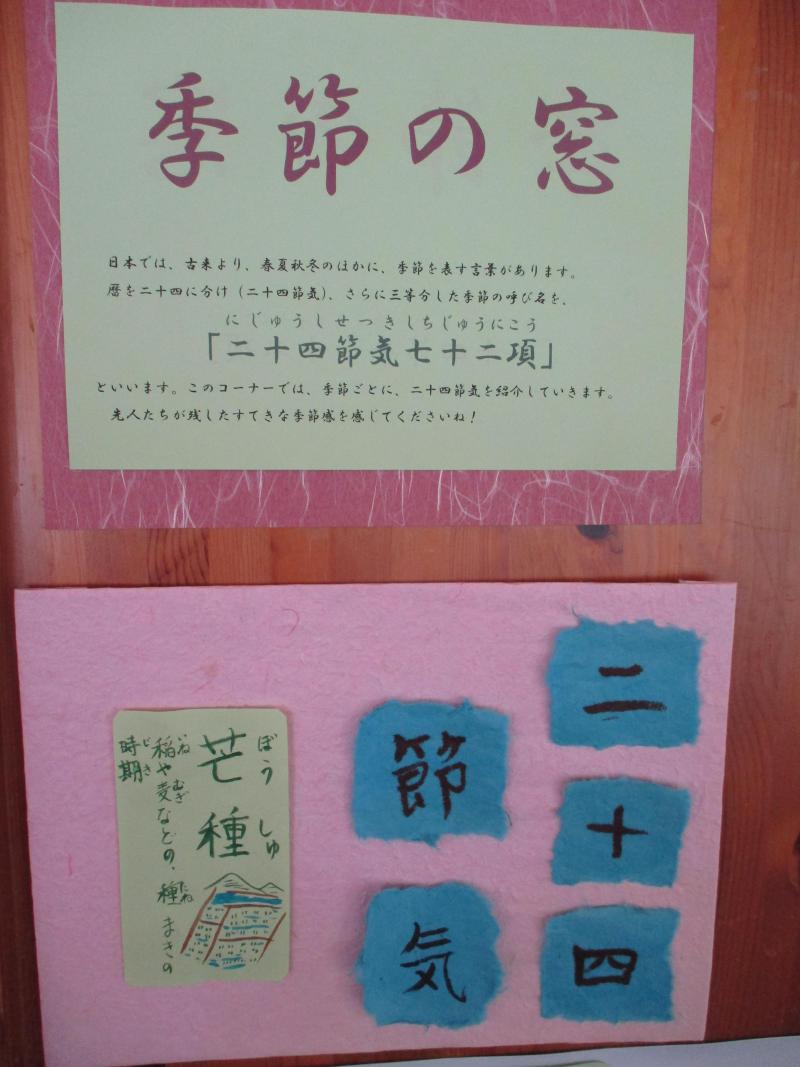 季節の窓
日本では、古来より、春夏秋冬のほかに、季節を表す言葉があります。
暦を二十四に分け（二十四節気）、さらに三等分した季節の呼び名を、
にじゅうしせつきしちじゅうにこう
「二十四節気七十二項」
といいます。このコーナーでは、季節ごとに、二十四節気を紹介していきます。
先人たちが残したすてきな季節感を感じてくださいね！
二十四
節気
ぼうしゅ
芒種
いね むぎ たね
稲や麦などの、種まきの
じき
時期